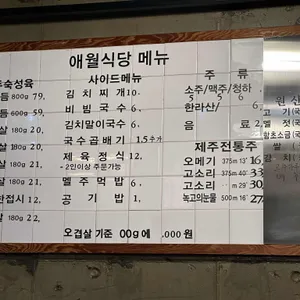 애월식당 메뉴
숙성육
800g 79,
600g 59,
살 180g 20,
살 180g 21,
살 180g 22,
살 180g 21,
한접시 12,
살 180g 22,
사이드메뉴
김치찌개 10.
비빔국수 6.
김치말이국수 6.
국수곱배기 1,5추가
제육정식 12.
-2인이상 주문가능
멜주먹밥 6.
공기밥 1.
오겹살 기준 00g에 .000원
주류
소주/맥주/청하
5 5 6
한라산/ 6.
음료 2
제주전통주
오메기 375m 13° 16.
고소리 375m 40° 33
고소리 m 29° 30.
녹고의눈물 500m 16° 27
원산
고기
멜젓
황초소금
쌀
김치